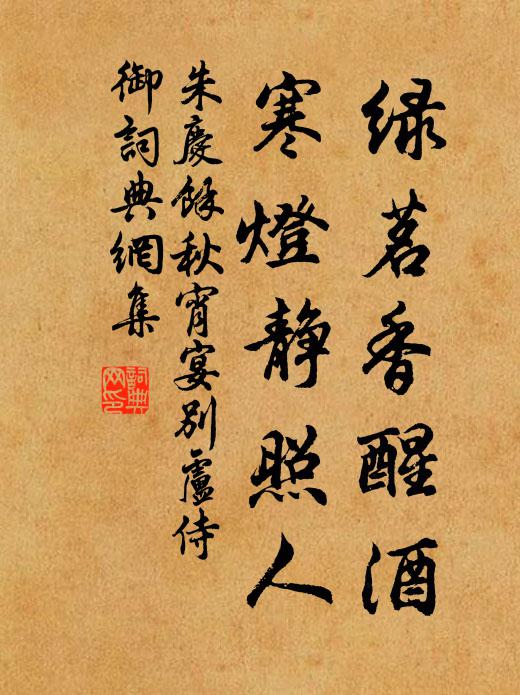 绿茗香醒酒
寒燈静照人
朱慶餘秋宵宴别盧侍
御詞典網集
詞典
网印